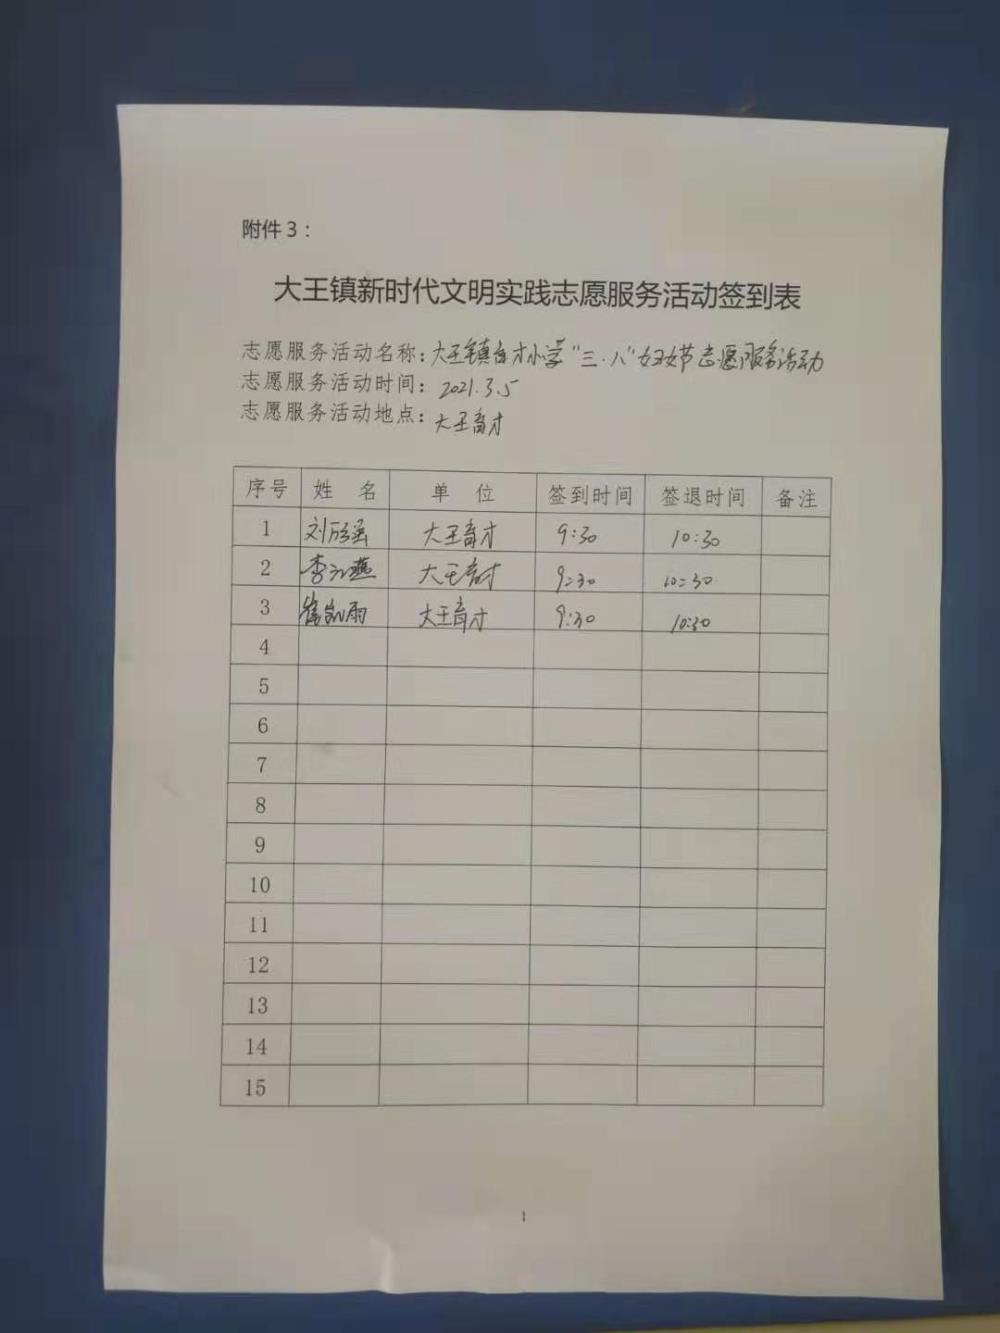 附件3：
大王镇新时代文明实践志愿服务活动签到表
志愿服务活动名称：大王镇育才小学“三·八”妇女节志愿服务活动
志愿服务活动时间：2021.3.5
志愿服务活动地点：大王育才
序号 姓 名 单 位 签到时间 签退时间 备注
1 刘 大王育才 9:30 10:30
2 李 燕 大王育才 9:30 10:30
3 崔凯雨 大王育才 9:30 10:30
4
5
6
7
8
9
10
11
12
13
14
15
1